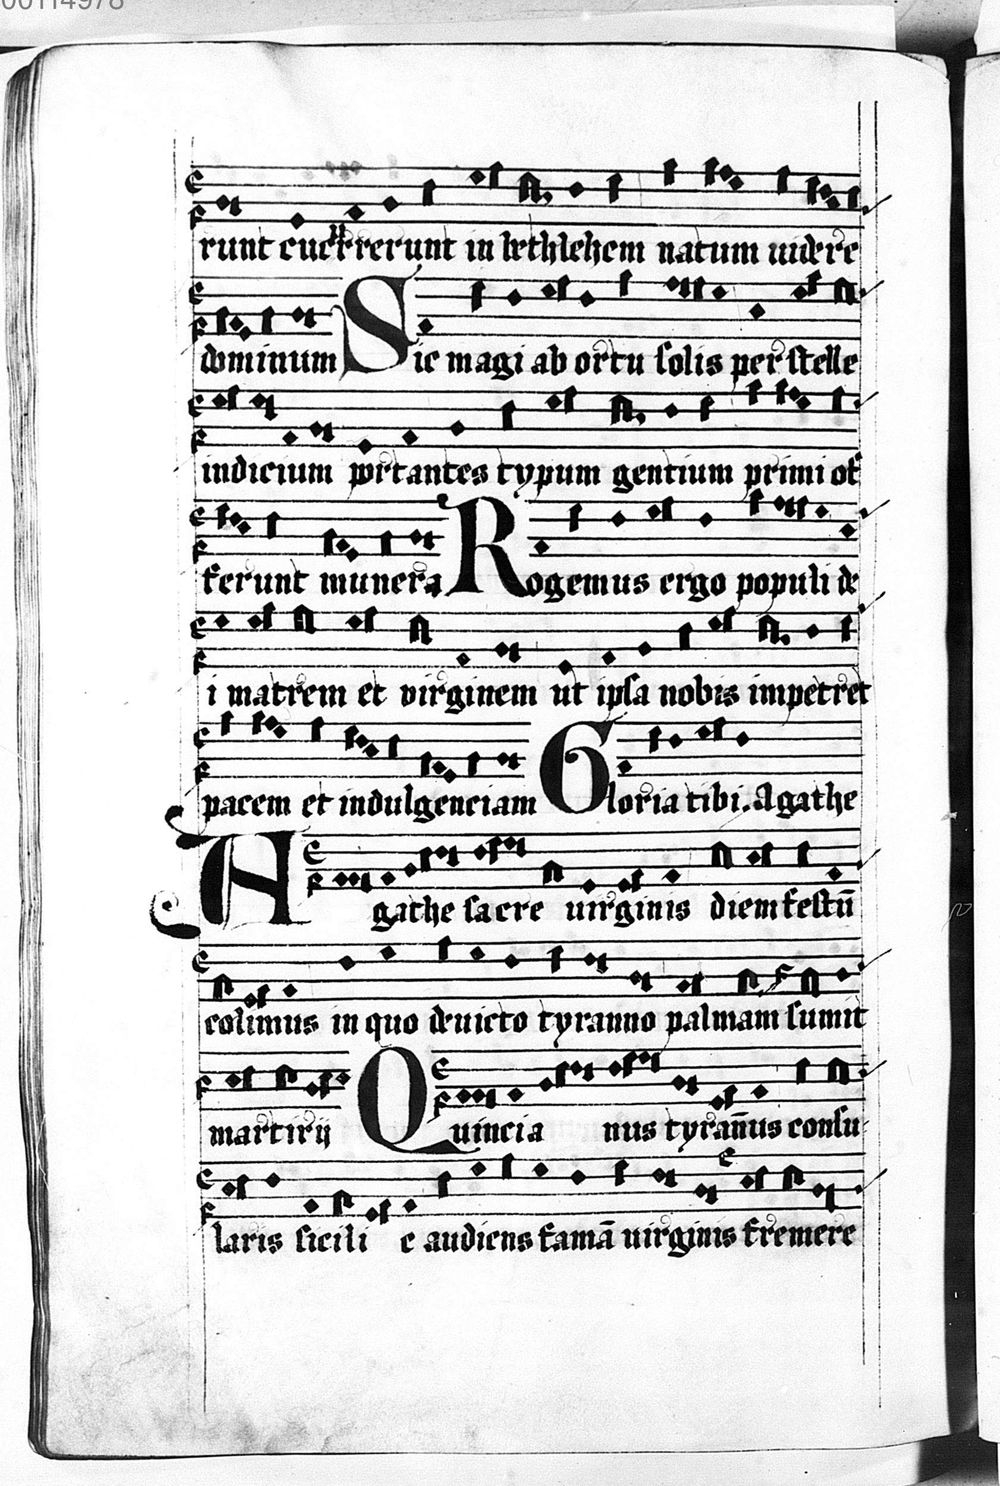 00114978
runt cucurrerunt in bethlehem natum uidere
dominum Sic magi ab ortu solis per stelle
indicium portantes typum gentium primi of
ferunt munera Rogemus ergo populi de
i matrem et virginem ut ipsa nobis impetret
pacem et indulgenciam Gloria tibi. Agathe
Agathe sacre uirginis diem festū
colimus in quo deuicto tyranno palmam sumit
martirij Quincia nus tyrañus consu
laris sicili e audiens famā uirginis fremere